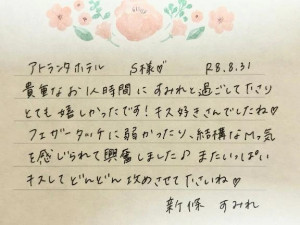 アトランタホテル S様♡ R8.8.31
貴重なお1人時間にすみれと過ごして下さり
とても嬉しかったです！キス好きさんでしたね♡
フェザータッチに弱かったり、結構なMっ気
を感じられて興奮しました♪ またいっぱい
キスしてどんどん攻めさせて下さいね♡
新條 すみれ